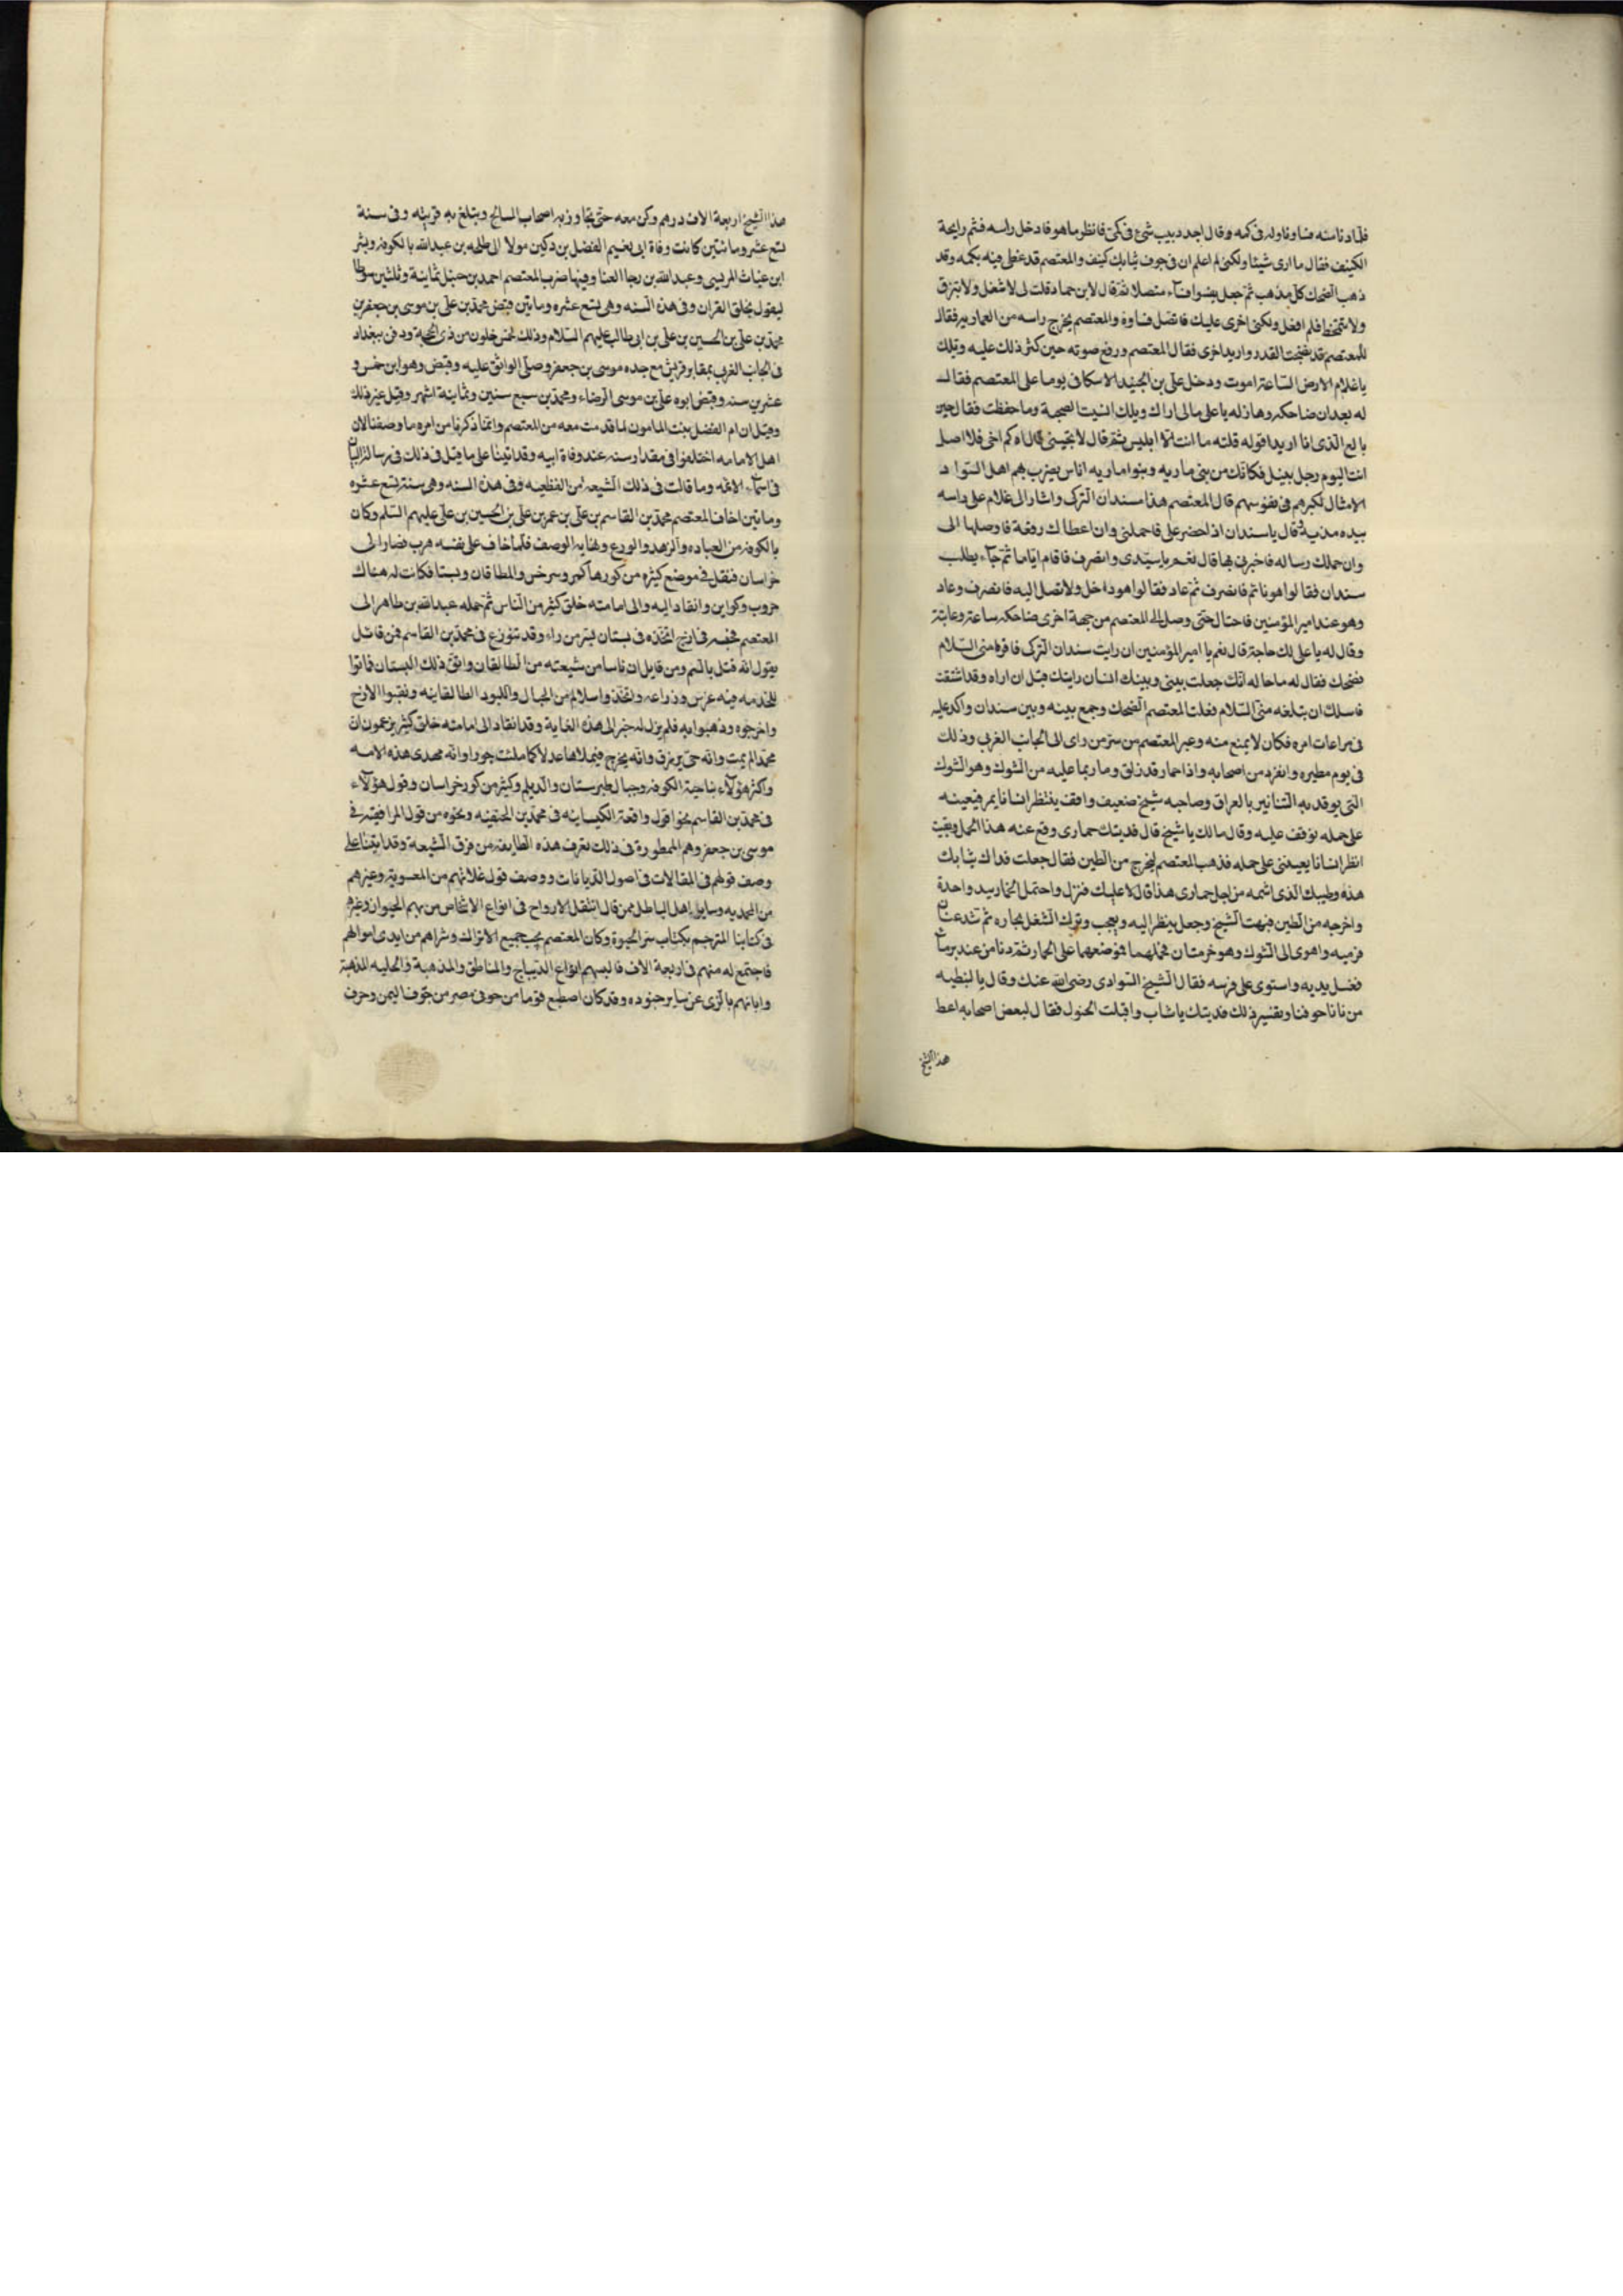 فلما دنا منه فساوفاوله فى كمه وقال اجد دبيب شىء فى كمى فانظر ما هو فادخل راسه فشم رايحة
الكنيف فقال ما ارى شيئا ولكنى لم اعلم ان فى جوف ثيابك كنيف والمعتصم قد غطى فيه بكمه وقد
ذهب الضحك كل مذهب ثم جعل يفسو افساء متصلا ثم قال لابن حماد قلت لى لا تسعل ولا تبزق
ولا تمتخط فلم افعل ولكنى اخرى عليك فاتصل فساوه والمعتصم يخرج راسه من العماريه فقال
للمعتصم قد نضجت القدر واريد اخرى فقال المعتصم ورفع صوته حين كثر ذلك عليه ويلك
يا غلام الارض الساعة اموت ودخل على بن الجنيد الاسكافى يوما على المعتصم فقال
له بعد ان ضاحكه وهازله يا على مالى لا اراك ويلك انسيت الصحبة وما حفظت فقال حين
بالع الذى انا اريد اقوله قلته ما انت الا ابليس ثم قال لا تجيبنى قال اه كم اجى فلا اصل
انت اليوم رجل نبيل فكانك من بنى ماريه وبنوا ماريه اناس يضرب بهم اهل السواد
الامثال لكبرهم فى نفوسهم قال المعتصم هذا سندان التركى واشار الى غلام على راسه
بيده مذبة فقال يا سندان اذا حضر على فاحملنى وان اعطاك رقعة فاوصلها الى
وان حملك رساله فاخبرنى بها قال نعم يا سيدى وانصرف فاقام اياما ثم جاء يطلب
سندان فقالوا هو نائم فانصرف ثم عاد فقالوا هو داخل ولا تصل اليه فانصرف وعاد
وهو عند امير المؤمنين فاحتال حتى وصل الى المعتصم من جهة اخرى فضاحكه ساعة وعابثه
وقال له يا على لك حاجة قال نعم يا امير المؤمنين ان رايت سندان التركى فاقره منى السلام
فضحك فقال له ما حاله انك جعلت بينى وبينك انسان رايتك قبل ان اراه وقد اشتقت
فاسلك ان تبلغه منى السلام فغلب المعتصم الضحك وجمع بينه وبين سندان واكد عليه
فى مراعات امره فكان لا يمنع منه وعبر المعتصم من سر من راى الى الجانب الغربى وذلك
فى يوم مطيره وانفرد من اصحابه واذا حمار قد زلق وما رمى بما عليه من الشوك وهو الشوك
التى يوقد به التنانير بالعراق وصاحبه شيخ ضعيف واقف ينتظر انسانا يمر فيعينه
على حمله فوقف عليه وقال مالك يا شيخ قال فديتك حمارى وقع عنه هذا الحمل وبقيت
انظر انسانا يعيننى على حمله فذهب المعتصم ليخرج من الطين فقال جعلت فداك ثيابك
هذه وطيبك الذى اشمه من اجل حمارى هذا قال لا عليك فنزل واحتمل الحمار بيد واحدة
واخرجه من الطين فبهت الشيخ وجعل ينظر اليه ويعجب وترك الشغل بحاره ثم شد عنان
فرسه واهوى الى الشوك وهو خرمتان فحملهما فوضعهما على الحمار ثم دنا من عند بر ماء
فغسل يديه واستوى على فرسه فقال الشيخ السوادى رضى الله عنك وقال بالنبطيه
من نانا حوفنا وتفسير ذلك فديتك يا شاب واقبلت الخيول فقال لبعض اصحابه اعط
هذا الشيخ
هذا الشيخ اربعة الاف درهم وكن معه حتى تجاوز به اصحاب المسالح وتبلغ به قريته وفى سنة
تسع عشر ومائتين كانت وفاة ابى نعيم الفضل بن دكين مولا الى طلحه بن عبد الله بالكوفه وبشر
ابن غياث المريسى وعبد الله بن رجا العنا وفيها ضرب المعتصم احمد بن حنبل ثمانية وثلثين سوطا
ليقول بخلق القران وفى هذه السنه وهى تسع عشره ومايتين قبض محمد بن على بن موسى بن جعفر بن
محمد بن على بن الحسين بن على بن ابى طالب عليهم السلام وذلك لخمس خلون من ذى الحجة ودفن ببغداد
فى الجانب الغربى بمقابر قريش مع جده موسى بن جعفر وصلى الواثق عليه وقبض وهو ابن خمس و
عشرين سنه وقبض ابوه على بن موسى الرضاء ومحمد بن سبع سنين وثمانية اشهر وقيل غير ذلك
وقيل ان ام الفضل بنت المامون لما قدمت معه من المعتصم وانما ذكرنا من امره ما وصفنا لان
اهل الامامه اختلفوا فى مقدار سنه عند وفاة ابيه وقد اتينا على ما قيل فى ذلك فى رسالة البيان
فى اسماء الائمه وما قالت فى ذلك الشيعه من القطعيه وفى هذه السنه وهى سنة تسع عشره
ومائتين اخاف المعتصم محمد بن القاسم بن على بن عمر بن على بن الحسين بن على عليهم السلم وكان
بالكوفه من العباده والزهد والورع ونهايه الوصف فلما خاف على نفسه هرب فصار الى
خراسان فتنقل فى موضع كثيره من كورها كمرو وسرخس والطاقان ونسا فكانت له هناك
حروب وكواين وانقاد اليه والى امامته خلق كثير من الناس ثم حمله عبد الله بن طاهر الى
المعتصم فحبسه فى ازج اتخذه فى بستان بسر من راء وقد تنوزع فى محمد بن القاسم فمن قائل
يقول انه قتل بالسم ومن قايل ان ناسا من شيعته من الطالقان وافق ذلك البستان فاتوا
للخدمه فيه غرس وزراعه واتخذوا سلالم من الحبال واللبود الطالقانيه ونقبوا الازج
واخرجوه وذهبوا به فلم يزل له خبر الى هذه الغاية وقد انقاد الى امامته خلق كثير يزعمون ان
محمد الم يمت وانه حى يرزق وانه يخرج فيملاها عدلا كما ملئت جورا وانه مهدى هذه الامه
واكثر هؤلاء بناحية الكوفه وجبال طبرستان والديلم وكثير من كور خراسان وقول هؤلاء
فى محمد بن القاسم نحوا قول واقعة الكيسانيه فى محمد بن الحنفيه ونحوه من قول الرافقيه فى
موسى بن جعفر وهم الممطورة فى ذلك تعرف هذه الطايفه من فرق الشيعة وقد اتينا على
وصف قولهم فى المقالات فى اصول الديانات ووصف قول غلاتهم من المعسويه وغيرهم
من المحمديه وساير اهل الباطل ممن قال انتقل الارواح فى انواع الاشخاص من بهم الحيوان وغيره
فى كتابنا المترجم بكتاب سر الحيوة وكان المعتصم يحب جميع الاتراك وشراهم من ايدى مواليهم
فاجتمع له منهم فى اربعة الاف فالبسهم انواع الديباج والمناطق والمذهبة والحليه المذهبة
وابانهم بالزى عن ساير جنوده وقد كان اصطنع قوما من حوفى مصر من حوف اليمن وحوف